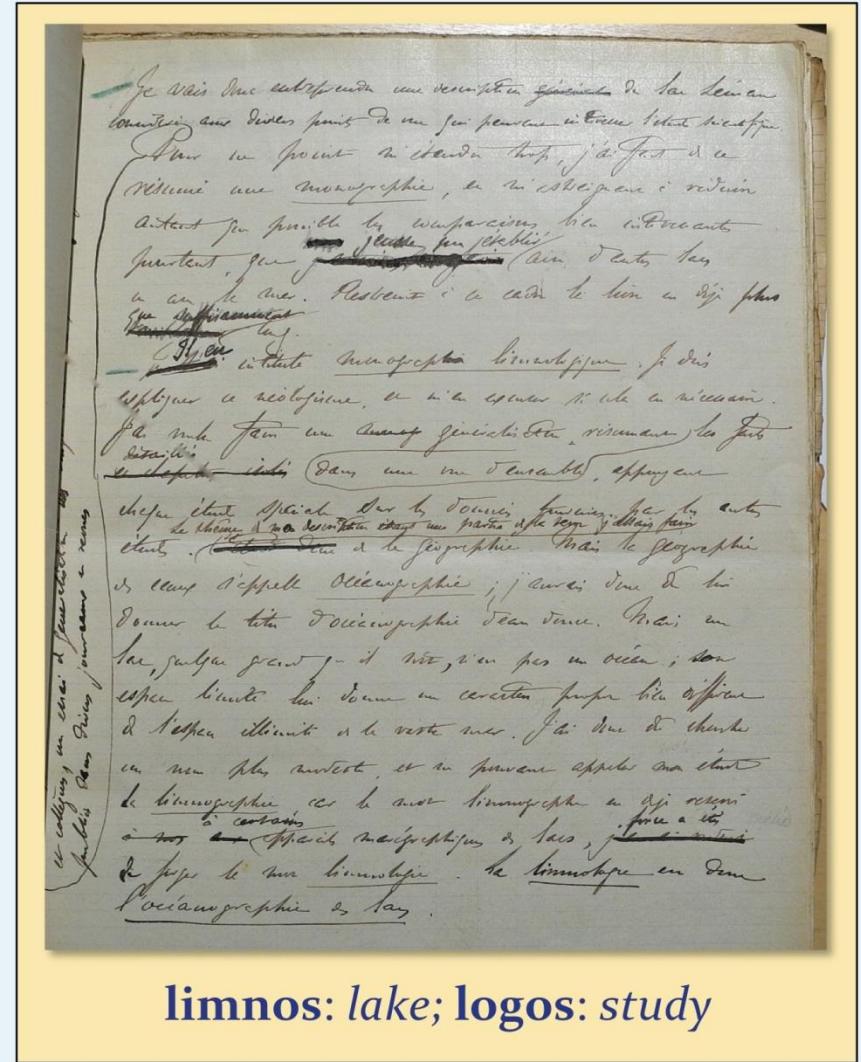 Je vais donc entreprendre une description générale du lac Léman
considéré aux divers points de vue qui peuvent intéresser l'étude scientifique
Pour ne point m'étendre trop, j'ai fait de ce
résumé une monographie, en m'astreignant à réduire
autant que possible les comparaisons bien intéressantes
pourtant, que j'eusse pu établir avec d'autres lacs
ou avec la mer. Restreint à ce cadre le livre est déjà plus
que suffisamment long.
intitulé monographie limnologique. Je dois
expliquer ce néologisme, et m'en excuser si cela est nécessaire.
J'ai voulu faire une généralisation résumant les faits
détaillés dans une vue d'ensemble, appuyant
chaque étude spéciale sur les données fournies par les autres
Le thème de ma description étant une partie de la terre j'allais faire
études. de la géographie. Mais la géographie
des eaux s'appelle océanographie ; j'aurais donc dû lui
donner le titre d'océanographie d'eau douce. Mais un
lac, quelque grand qu'il soit, n'est pas un océan ; son
espace limité lui donne un caractère propre bien différent
de l'espace illimité de la vaste mer. J'ai donc dû chercher
un nom plus modeste, et ne pouvant appeler mon étude
la limnographie car le mot limnographe est déjà réservé
à certains appareils marégraphiques des lacs, force a été
de forger le mot limnologie. La limnologie est donc
l'océanographie des lacs.
et collègues, un essai de généralisation
publiés dans divers journaux et revues
limnos: lake; logos: study